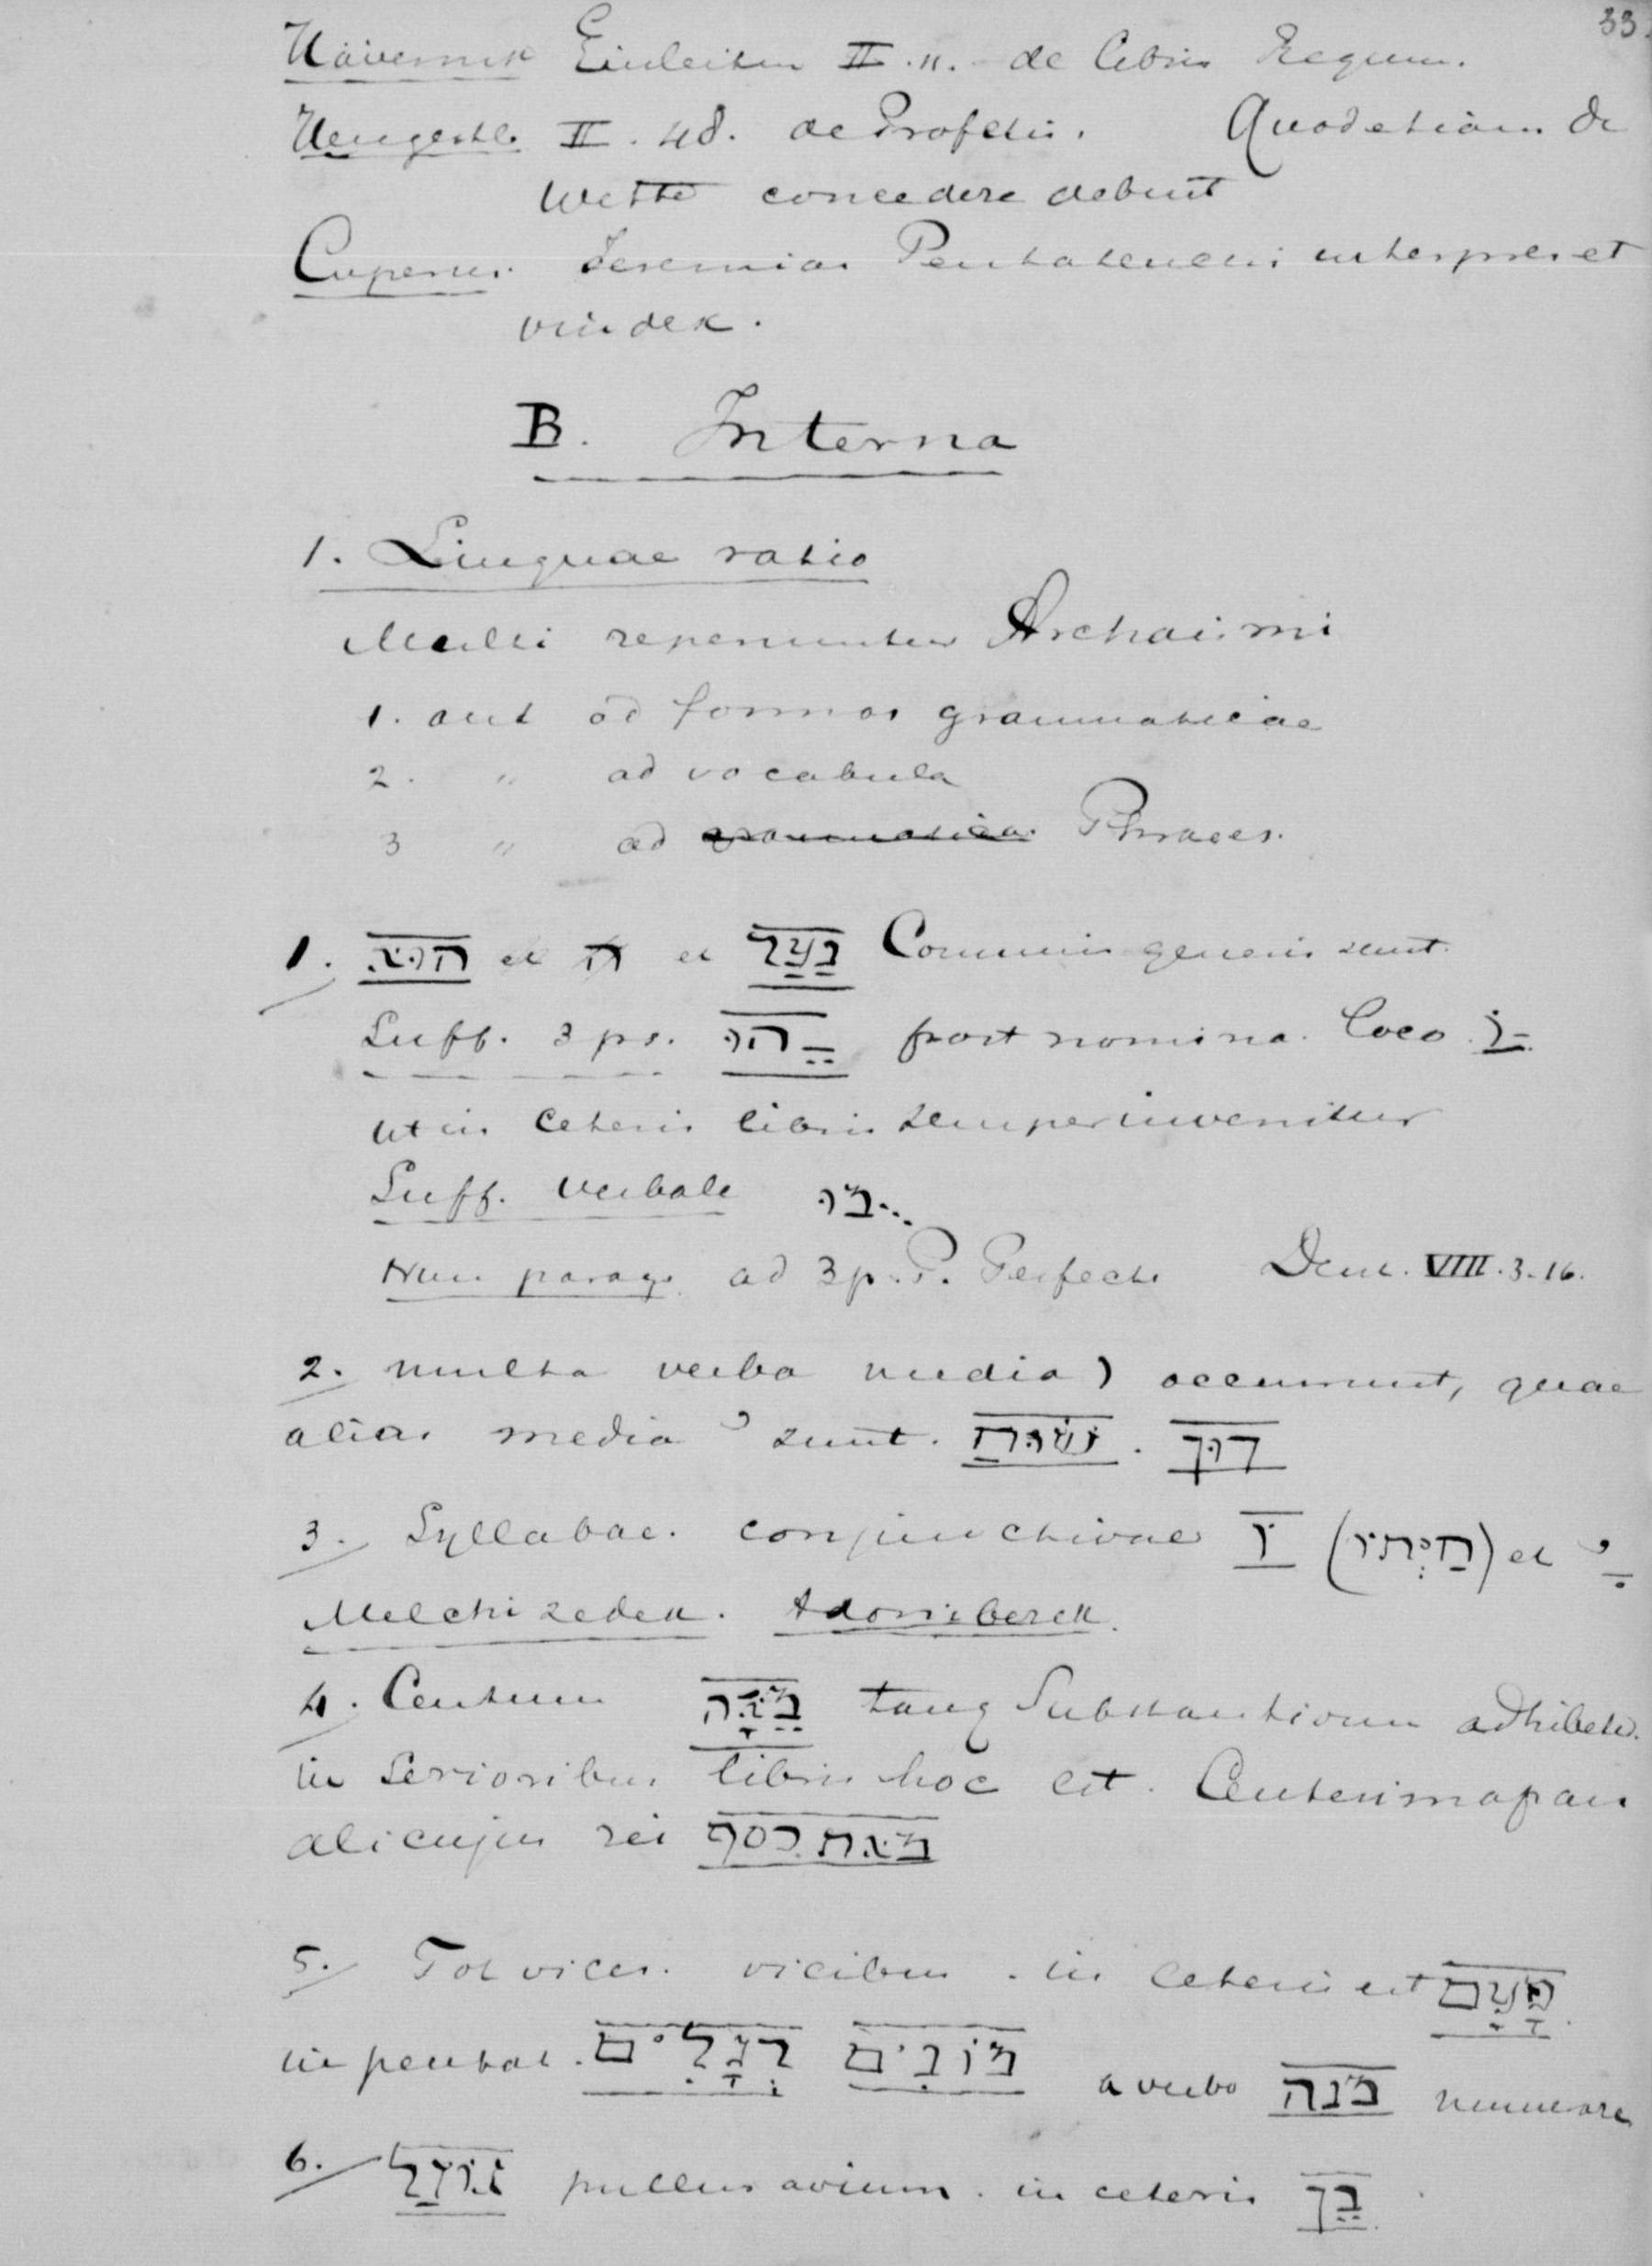 33.
Hävernick Einleiten II. 11. de libris Regum.
Hengestb. II. 48. de Profetis. Quod etiam de
Wette concedere debuit
Cuperus. Jeremias Pentateuchi interpres et
vindex.
B. Interna
1. Linguae ratio
Multi reperiuntur Archaismi
1. aut ad formas grammaticae
2. " ad vocabula
3 " ad Phrases.
1. הוא et et נַעַר Communis generis sunt.
Suff. 3 ps. ֵהוּ post nomina. loco וֹ
ut in ceteris libris semper invenitur
Suff. verbale מוֹ
Nun parag. ad 3 p. P. Perfecti Deut. VIII. 3. 16.
2. multa verba media ו occurrunt, quae
alias media י sunt. דון
3. Syllabae conjunctivae וֹ (חַיְתוֹ) et ִי
Melchizedek. Adonibezek.
4. Centum מֵאָה tanq Substantivum adhibetur.
in serioribus libris hoc est. Centesima pars
alicujus rei מאת כסף
5. Tot vices. vicibus. in ceteris est פַּעַם
in pentat. רְגָלִים מונים a verbo מנה numerare
6. גוזל pullus avium. in ceteris בֵּן